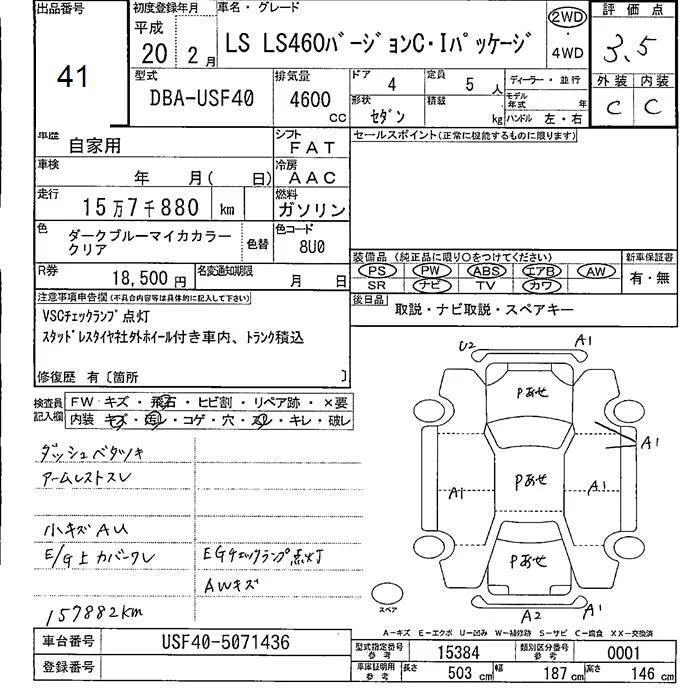 出品番号 初度登録年月 車名・グレード 2WD 評価点
41
平成 20年 2月 LS LS460バージョンC・Iパッケージ ・ 4WD 3.5
型式 排気量 ドア 4 定員 5人 ディーラー・並行 外装 内装
DBA-USF40 4600cc 形状 セダン 積載 kg モデル年式 年 ハンドル 左・右 C C
車歴 自家用 シフト FAT セールスポイント(正常に機能するものに限ります)
車検 年 月( 日) 冷房 AAC
走行 15万7千880 km 燃料 ガソリン
色 ダークブルーマイカカラークリア 色替 色コード 8U0
装備品 (純正品に限り○をつけてください) 新車保証書
PS PW ABS エアB AW 有・無
SR ナビ TV カワ
R券 18,500円 名変通知期限 月 日
後日品 取説・ナビ取説・スペアキー
注意事項申告欄(不具合内容等は具体的に記入して下さい)
VSCチェックランプ点灯
スタッドレスタイヤ社外ホイール付き車内、トランク積込
修復歴 有〔箇所 〕
検査員記入欄 FW キズ・飛石・ヒビ割・リペア跡・×要
内装 キズ・汚レ・コゲ・穴・スレ・キレ・破レ
ダッシュベタツキ
アームレストスレ
小キズAU
E/G上カバークレ EGチェックランプ点灯
AWキズ
157882km
U2 A1
Pあせ
A1
A1 Pあせ A1
Pあせ
A2 A1
スペア
A-キズ E-エクボ U-凹み W-補修跡 S-サビ C-腐食 XX-交換済
車台番号 USF40-5071436 型式指定番号 参考 15384 類別区分番号 参考 0001
登録番号 車庫証明用 参考 長さ 503 cm 幅 187 cm 高さ 146 cm